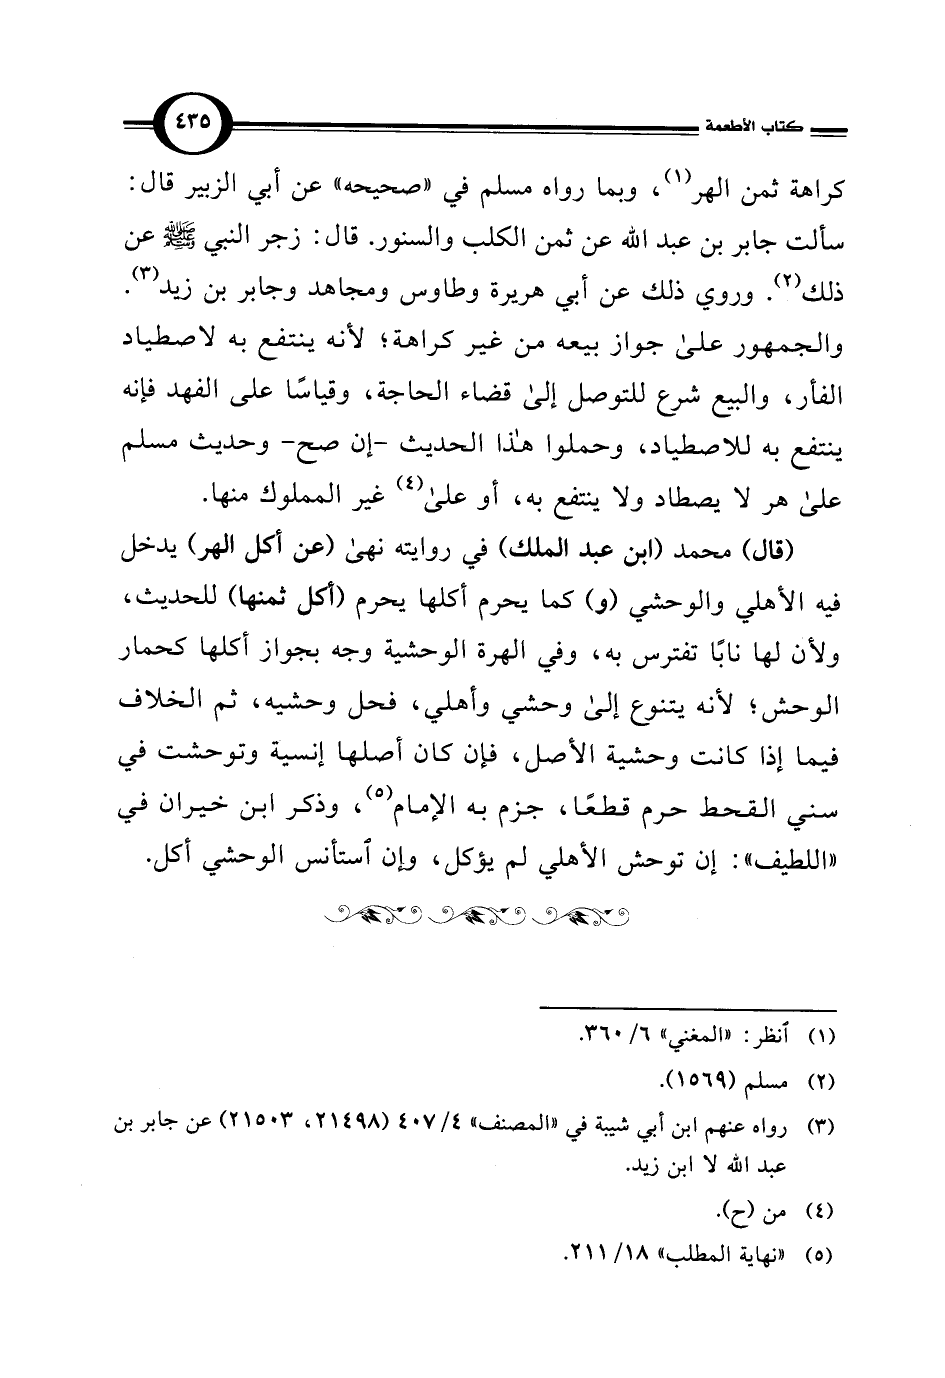 كتاب الأطعمة ٤٣٥
كراهة ثمن الهر(١)، وبما رواه مسلم في «صحيحه» عن أبي الزبير قال:
سألت جابر بن عبد الله عن ثمن الكلب والسنور. قال: زجر النبي ﷺ عن
ذلك(٢). وروي ذلك عن أبي هريرة وطاوس ومجاهد وجابر بن زيد(٣).
والجمهور علىٰ جواز بيعه من غير كراهة؛ لأنه ينتفع به لاصطياد
الفأر، والبيع شرع للتوصل إلىٰ قضاء الحاجة، وقياسًا على الفهد فإنه
ينتفع به للاصطياد، وحملوا هذا الحديث -إن صح- وحديث مسلم
علىٰ هر لا يصطاد ولا ينتفع به، أو علىٰ(٤) غير المملوك منها.
(قال) محمد (ابن عبد الملك) في روايته نهىٰ (عن أكل الهر) يدخل
فيه الأهلي والوحشي (و) كما يحرم أكلها يحرم (أكل ثمنها) للحديث،
ولأن لها نابًا تفترس به، وفي الهرة الوحشية وجه بجواز أكلها كحمار
الوحش؛ لأنه يتنوع إلىٰ وحشي وأهلي، فحل وحشيه، ثم الخلاف
فيما إذا كانت وحشية الأصل، فإن كان أصلها إنسية وتوحشت في
سني القحط حرم قطعًا، جزم به الإمام(٥)، وذكر ابن خيران في
«اللطيف»: إن توحش الأهلي لم يؤكل، وإن ٱستأنس الوحشي أكل.
(١) ٱنظر: «المغني» ٦/ ٣٦٠.
(٢) مسلم (١٥٦٩).
(٣) رواه عنهم ابن أبي شيبة في «المصنف» ٤/ ٤٠٧ (٢١٤٩٨، ٢١٥٠٣) عن جابر بن
عبد الله لا ابن زيد.
(٤) من (ح).
(٥) «نهاية المطلب» ١٨/ ٢١١.